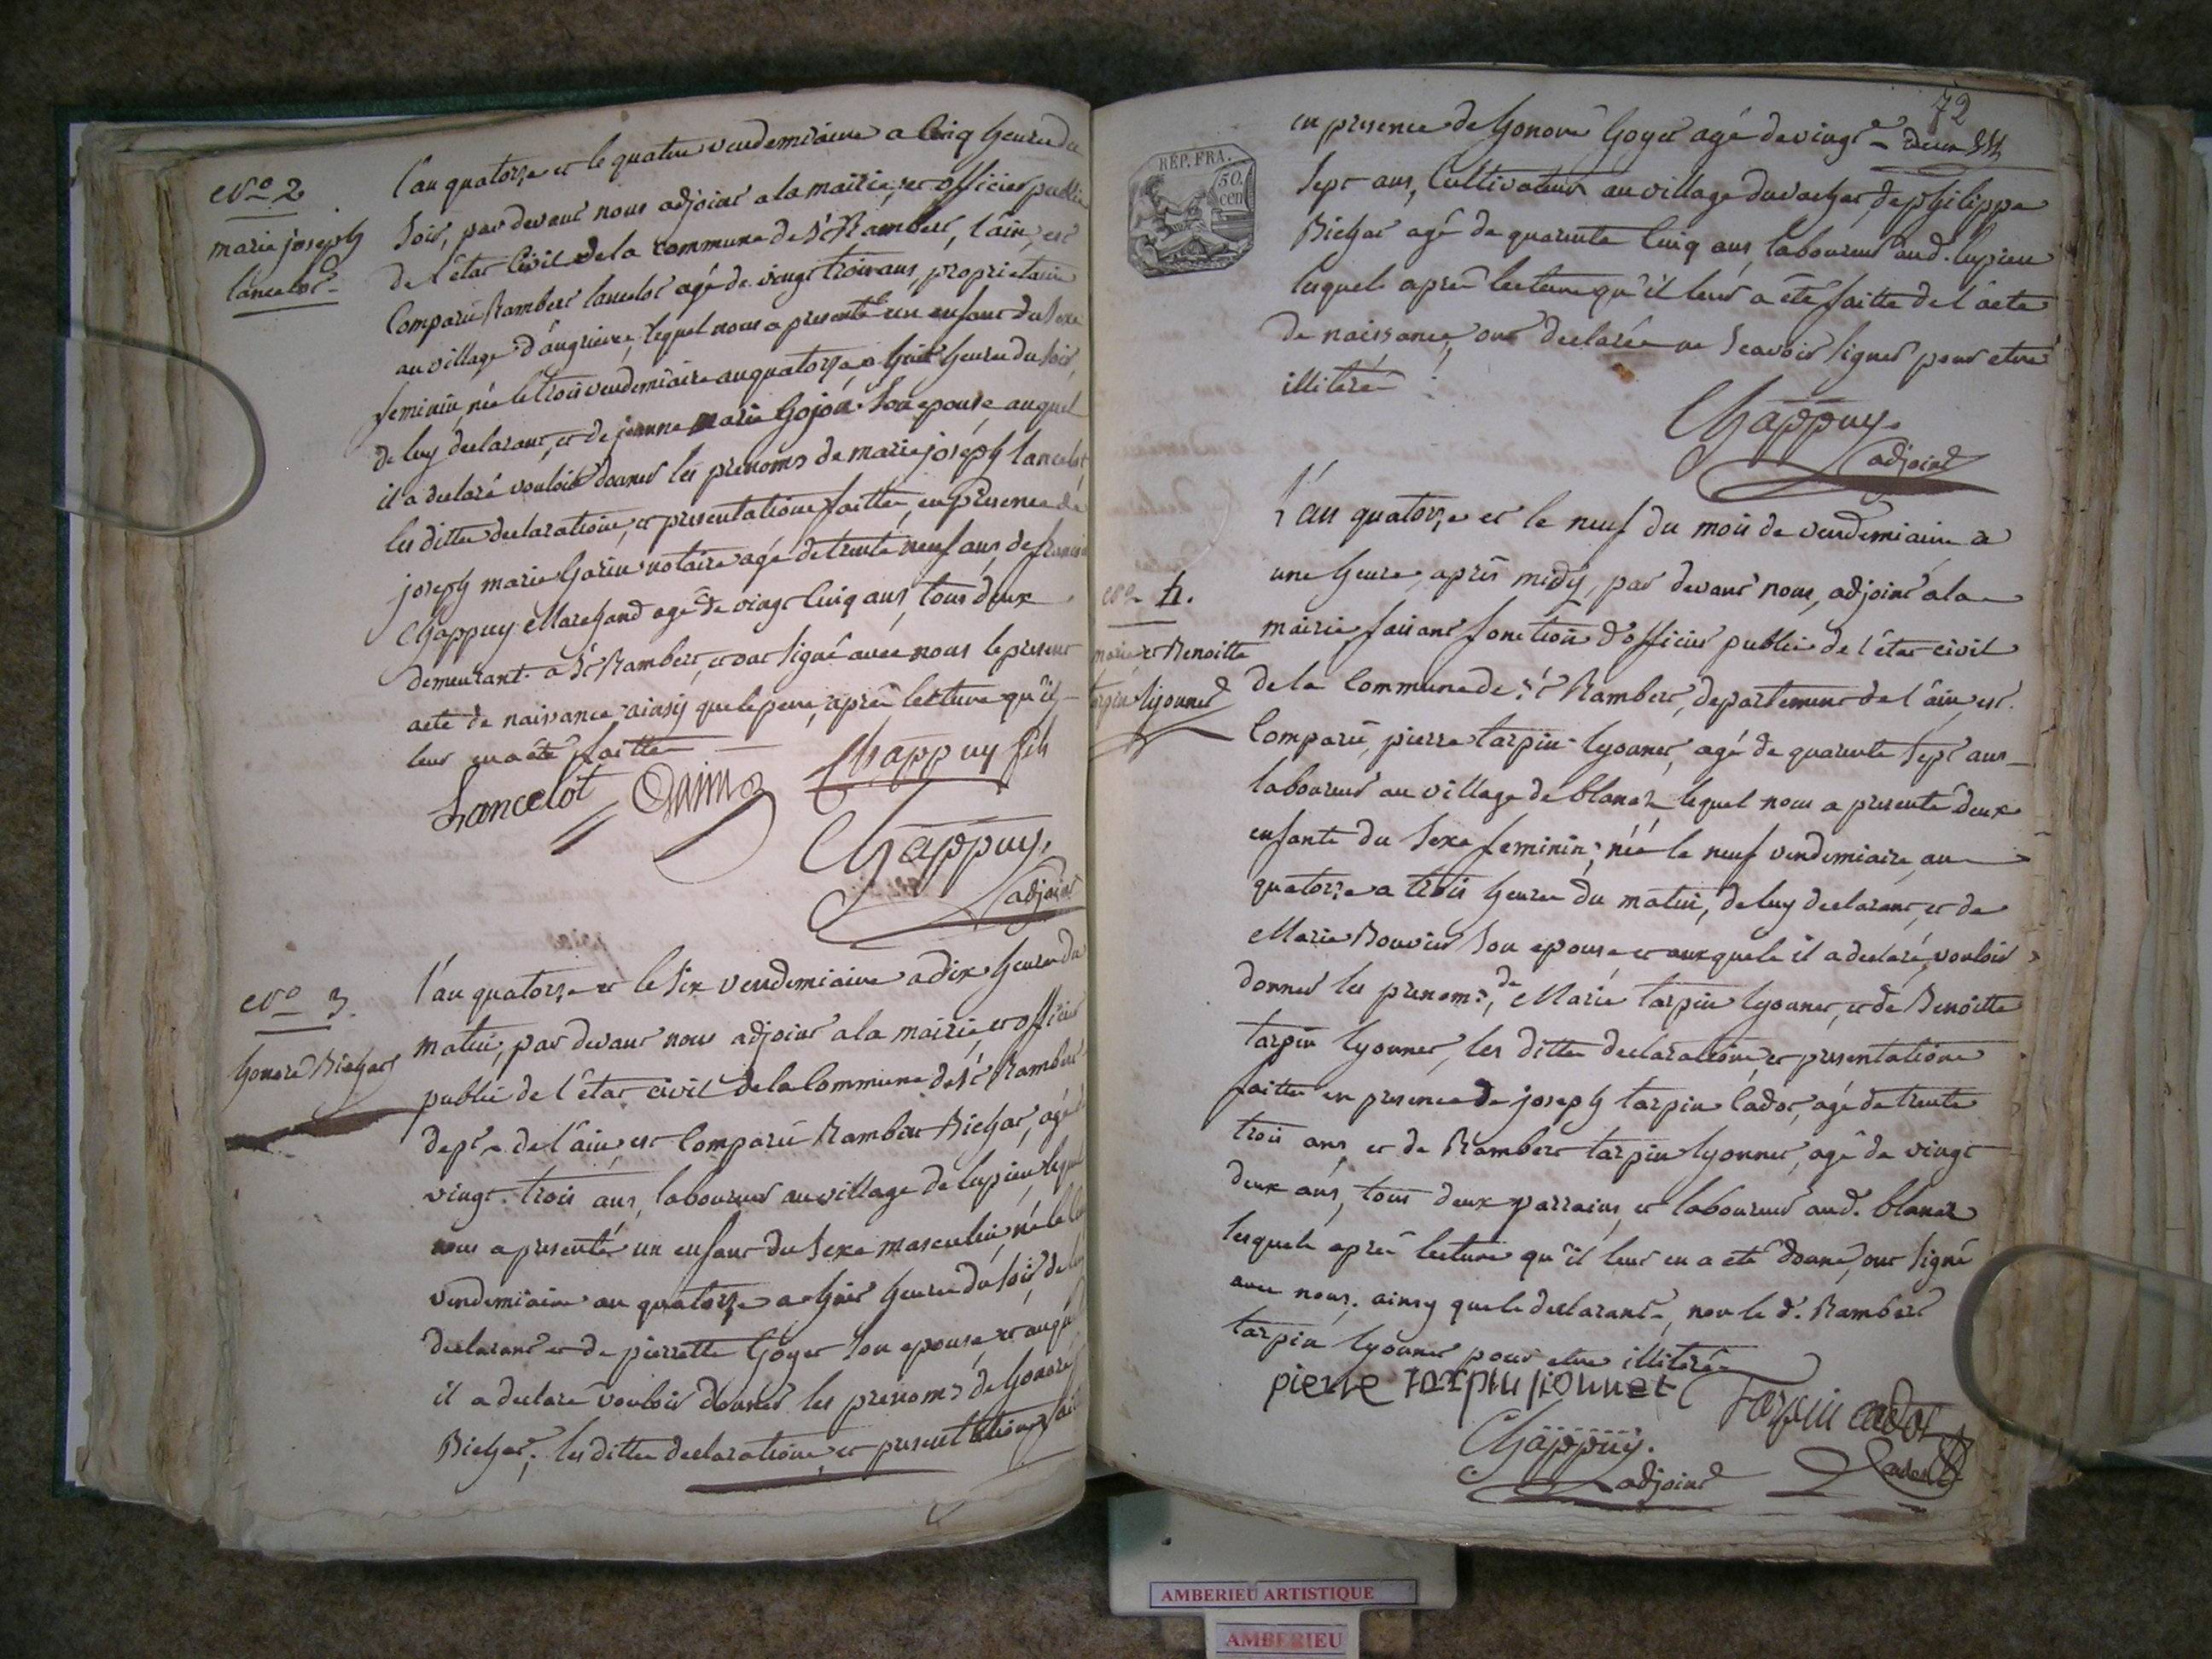 No 2
marie joseph
lancelot
l'an quatorze et le quatre vendemiaire a Cinq heures du
Soir, par devant nous adjoint a la mairie, et officier public
de l'état Civil de la commune de St Rambert, l'ain, est
Comparu Rambert lancelot agé de vingt trois ans, proprietaire
au village d'angrieres, lequel nous a presenté un enfant du Sexe
feminin, née le trois vendemiaire an quatorze a huit heures du soir,
de luy declarant, et de jeanne marie Gojon Son epouse, auquel
il a declaré vouloir donner les prenoms de marie joseph lancelot
les dittes declarations, et presentations faittes, en presence de
joseph marie Garin notaire agé de trente neuf ans, de francois
Chappuy Marchand agé de vingt Cinq ans, tous deux
demeurant a St Rambert, et ont Signé avec nous le present
acte de naissance, ainsy que le pere, après lecture qu'il
leur en a été faitte
Lancelot Garin Chappuy fils
Chappuy,
adjoint
No 3.
honoré Bichat
l'an quatorze et le Six vendemiaire a dix heures du
matin, par devant nous adjoint a la mairie, et officier
public de l'état civil de la Commune de St Rambert
dept. de l'ain, est Comparu Rambert Bichat, agé de
vingt trois ans, laboureur au village de lupieu, lequel
nous a presenté un enfant du Sexe masculin, né le
vendemiaire an quatorze a huit heures du soir, de luy
declarant et de pierrette Goyet Son epouse, et auquel
il a declaré vouloir donner les prenoms de honoré
Bichat; les dittes declarations, et presentations
72
RÉP. FRA.
50.
cen
en presence de honoré Goyet agé de vingt
Sept ans, Cultivateur au village du vachat, de philippe
Bichat agé de quarente Cinq ans, laboureur aud. lupieu
lesquels après lecture qu'il leur a été faitte de l'acte
de naissance, ont declarés ne Scavoir Signer pour etre
illiterés
Chappuy.
adjoint
No 4.
marie et Benoitte
tarpin lyonnet
L'an quatorze et le neuf du mois de vendemiaire a
une heure, après midy, par devant nous, adjoint a la
mairie faisant fonction d'officier public de l'état civil
de la Commune de St Rambert, departement de l'ain, est
Comparu, pierre tarpin lyonnet, agé de quarente Sept ans
laboureur au village de blanaz lequel nous a presenté deux
enfants du Sexe feminin, née le neuf vendemiaire, an
quatorze a trois heures du matin, de luy declarant, et de
Marie Bouvier Son epouse et auxquels il a declaré, vouloir
donner les prenoms, de Marie tarpin lyonnet, et de Benoitte
tarpin lyonnet, les dittes declarations, et presentations
faittes en presence de joseph tarpin Cador, agé de trente
trois ans, et de Rambert tarpin lyonnet, agé de vingt
deux ans, tous deux parrains, et laboureurs aud. blanaz
lesquels après lecture qu'il leur en a été donné, ont Signé
avec nous, ainsy que le declarant, non le d. Rambert
tarpin lyonnet pour etre illiteré
pierre tarpin lionnet Tarpin cador
Chappuy.
adjoint
AMBERIEU ARTISTIQUE
AMBERIEU